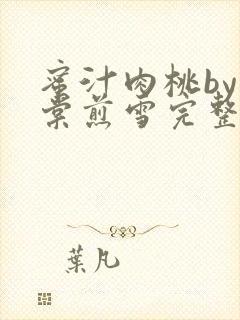 蜜汁肉桃by
棠煎雪完整
葉凡